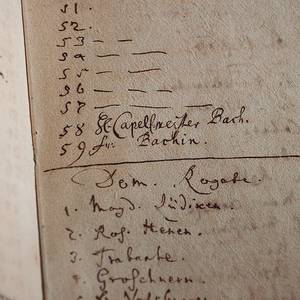 51.
52.
53 — —
54 — —
55 — —
56 — —
57 — — —
58 H. Capellmeister Bach.
59 fr. Bachin.
Dom. Rogate.
1. Magd. Jüdixen
2. Ros. Henen.
3. Trabanthe.
4. Groschnern.